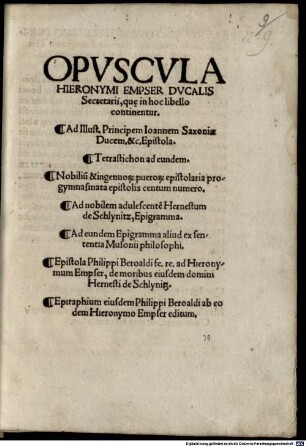 9
OPVSCVLA
HIERONYMI EMPSER DVCALIS
Secretarii, quę in hoc libello
continentur.
¶Ad Illust. Principem Ioannem Saxoniæ
Ducem, &c, Epistola.
¶Tetrastichon ad eundem.
¶Nobiliũ &ingenuoꝝ pueroꝝ epistolaria pro-
gymnasmata epistolis centum numero.
¶Ad nobilem adulescentẽ Hernestum
de Schlynitz, Epigramma.
¶Ad eundem Epigramma aliud ex sen-
tentia Musonii philosophi.
¶Epistola Philippi Beroaldi fe. re. ad Hierony-
mum Empser, de moribus eiusdem domini
Hernesti de Schlynitz.
¶Epitaphium eiusdem Philippi Beroaldi ab eo
dem Hieronymo Empser editum.